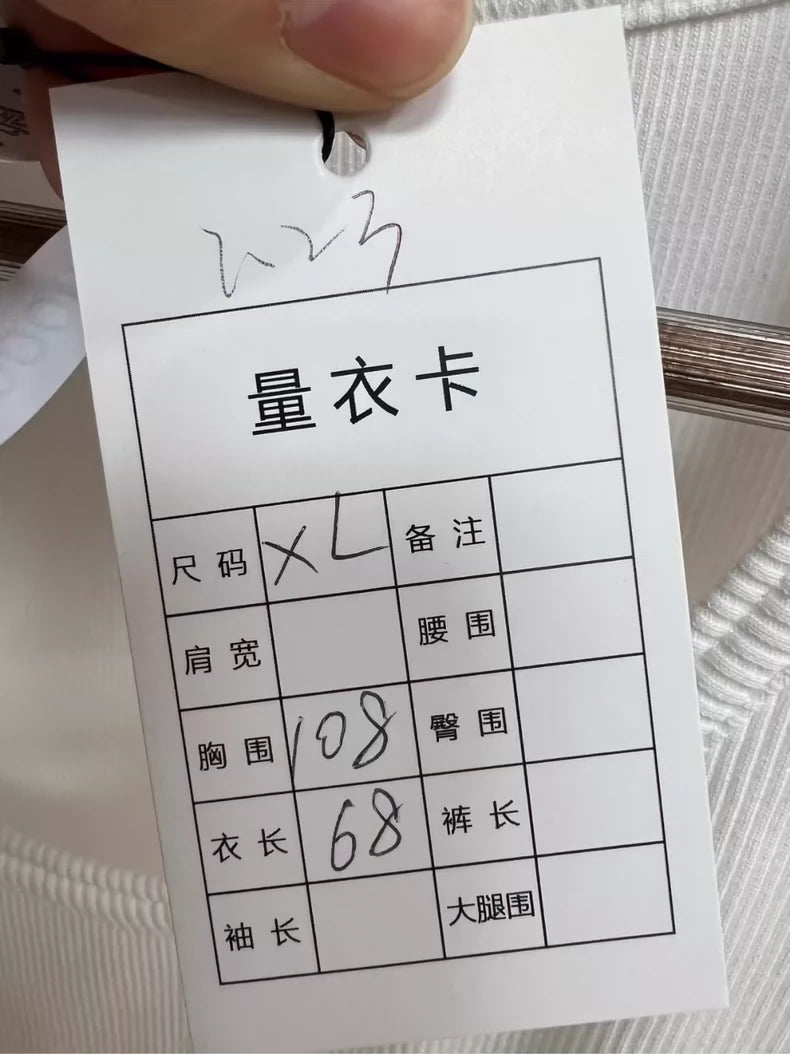 223
量衣卡
尺码 XL 备注
肩宽 腰围
胸围 108 臀围
衣长 68 裤长
袖长 大腿围